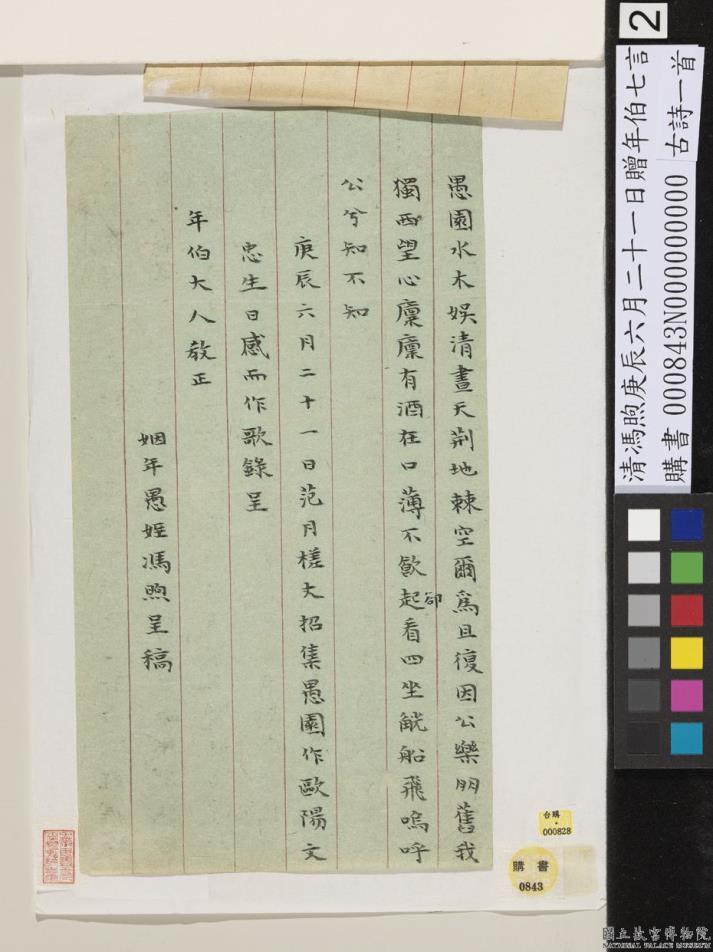 愚園水木娛清晝天荊地棘空爾為且復因公樂朋舊我
獨西望心廩廩有酒在口薄不飲起看四坐觥船飛嗚呼
卻
公兮知不知
庚辰六月二十一日范月槎丈招集愚園作歐陽文
忠生日感而作歌錄呈
年伯大人教正
姻年愚姪馮煦呈稿
2
清馮煦庚辰六月二十一日贈年伯七言古詩一首
購書 000843N000000000
台購
000828
購書
0843
國立故宮博物院
NATIONAL PALACE MUSEUM